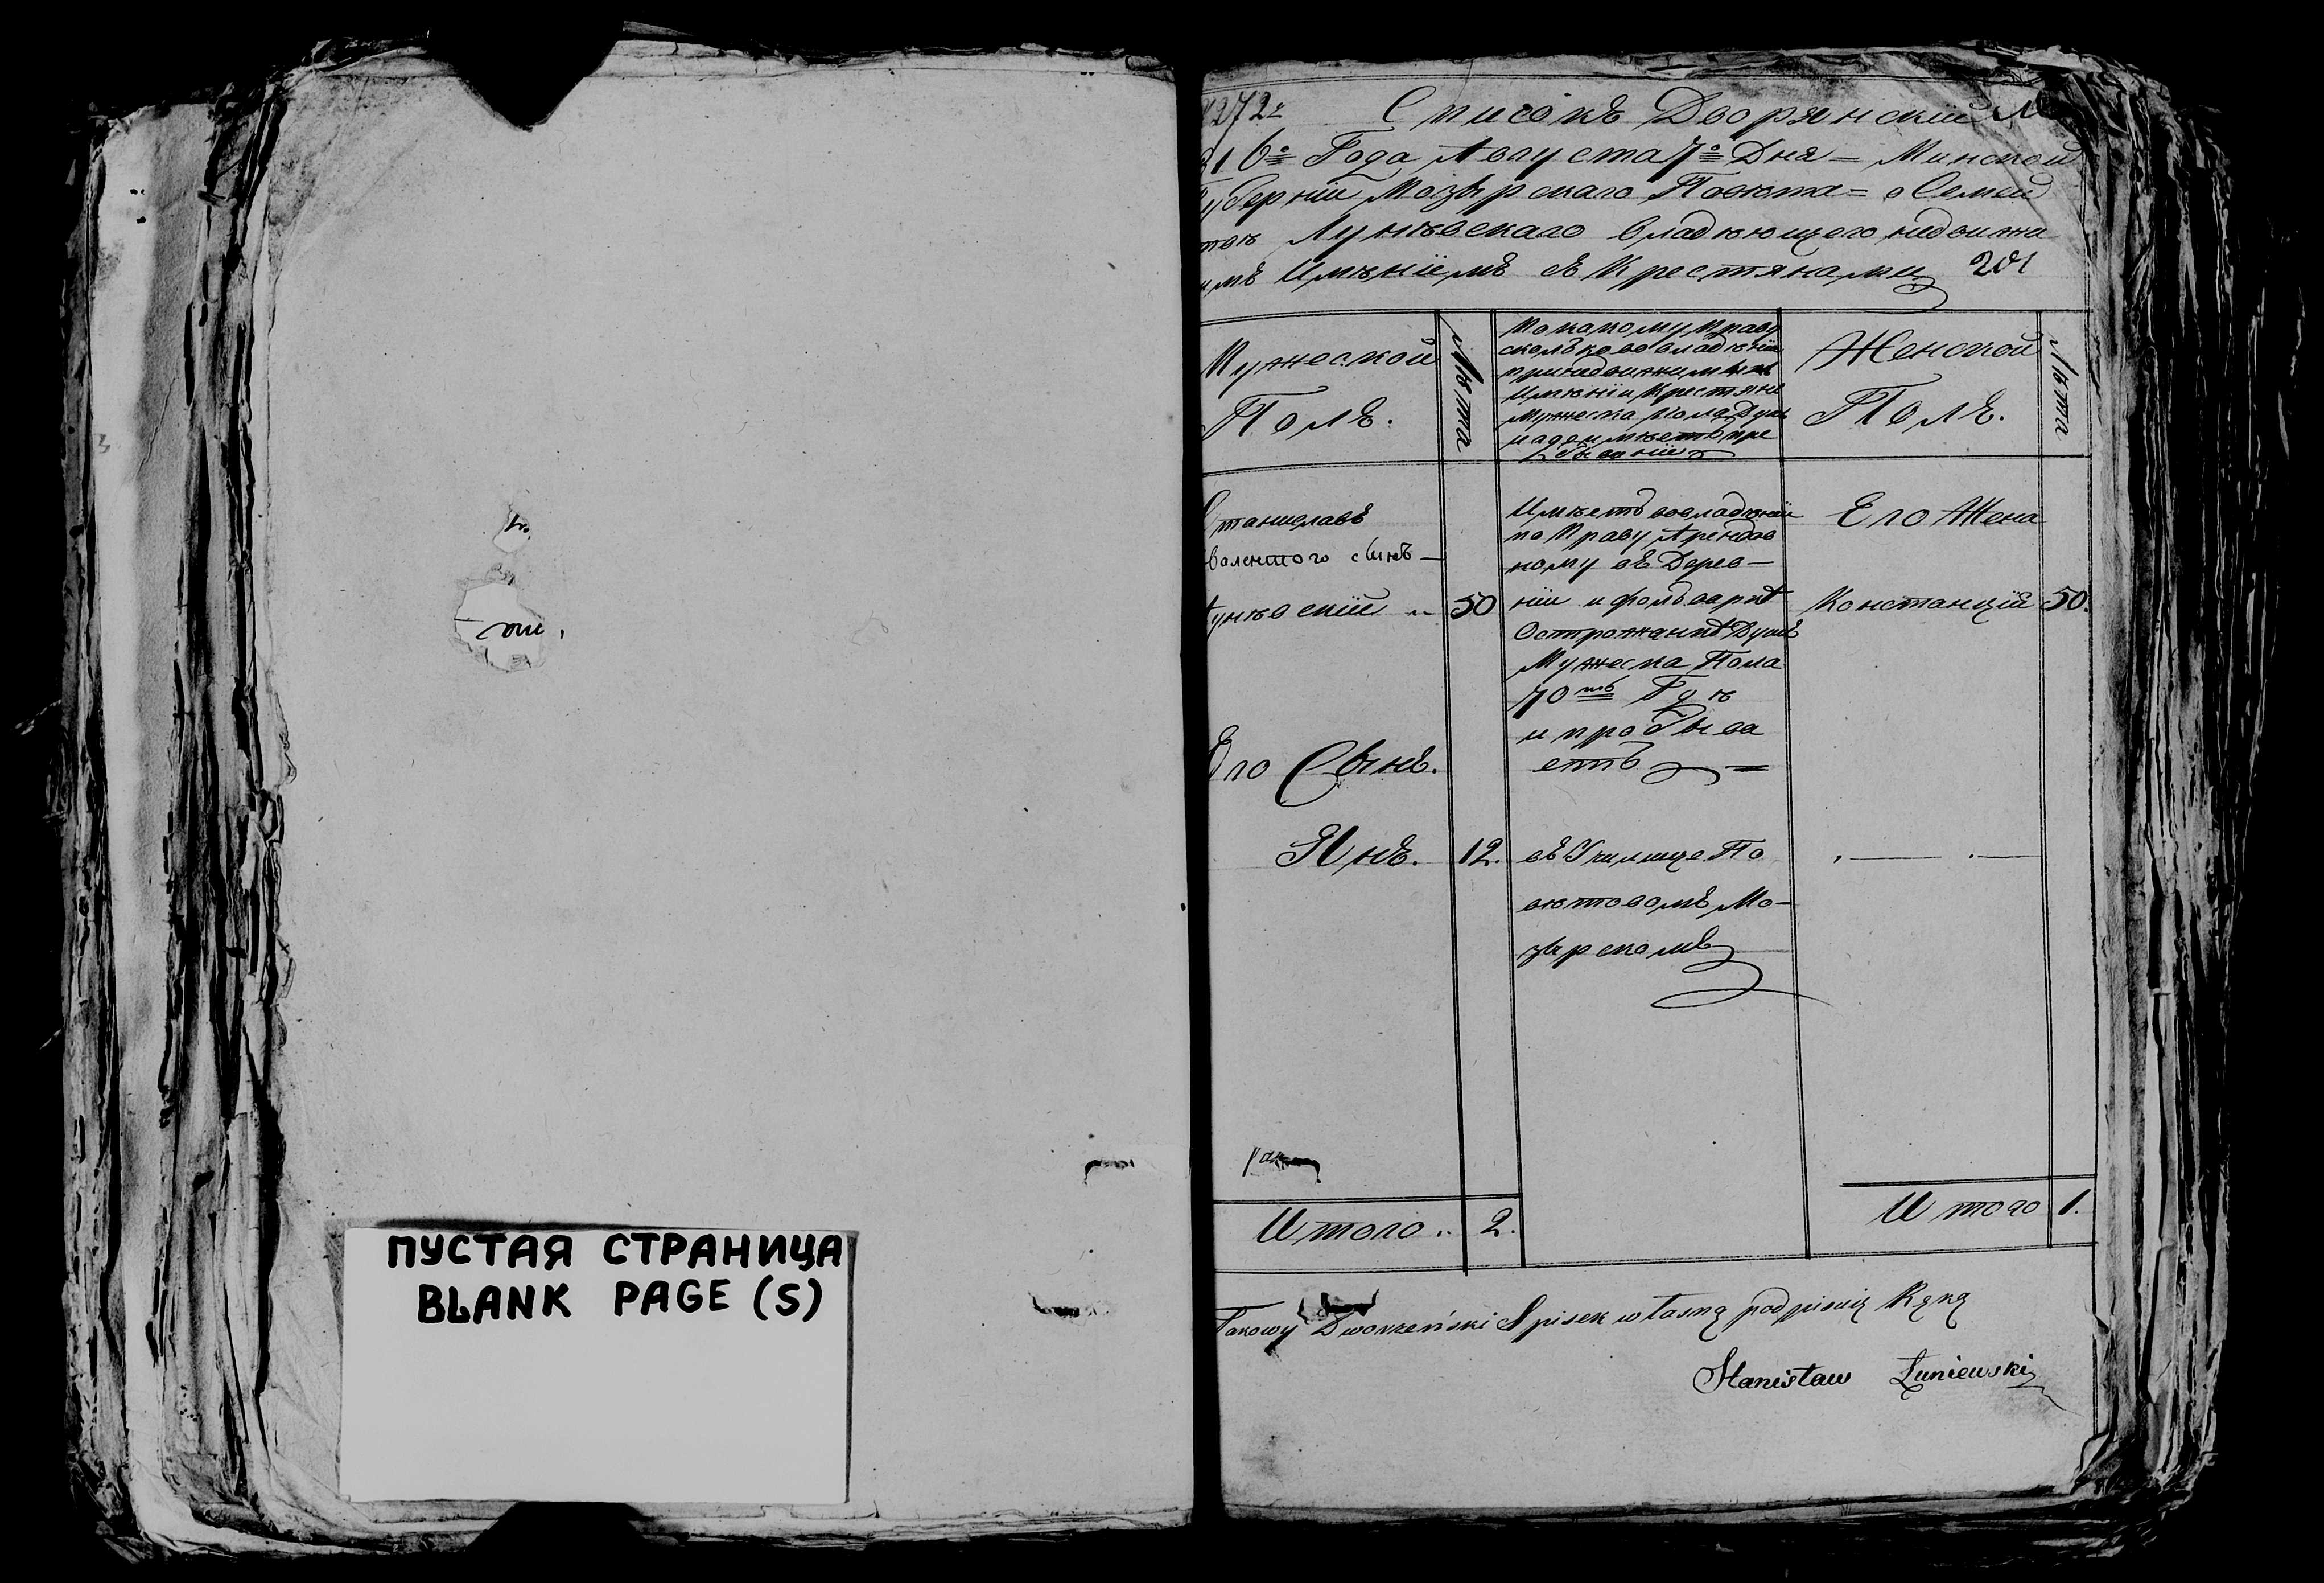 ПУСТАЯ СТРАНИЦА
BLANK PAGE (S)
Списокъ Дворянскій
316го Года Августа 7го Дня = Минской
Губерніи Мозырскаго Повѣта = о Семей
ствѣ Лунѣвскаго владѣющего недвижи
имъ Имѣніемъ съ Крестянами 201
Мужеской
Полъ.
Лѣта
По какому Праву
сколько во владѣніи
при недвижимымъ
Имѣніи Крестяне
Мужеска Пола Душъ
и где имѣетъ пре
бываніе
Женской
Полъ.
Лѣта
Станиславъ
Валентого сынъ —
Лунѣвскій 50
Имѣетъ во владѣніи
по Праву Арендов
ному въ Дерев —
ніи и фольваркѣ
Остро­жанкѣ Душъ
Мужеска Пола
70тъ Гдѣ
и пробыва
етъ
Его Жена
Констанція 50.
Его Сынъ.
Янъ. 12.
въ Училище По
вѣтовомъ Мо —
зырскомъ
Итого .. 2.
Итого 1.
Takowy Dworzeński Spisek własną podpisuię Ręką
Stanisław Łuniewski